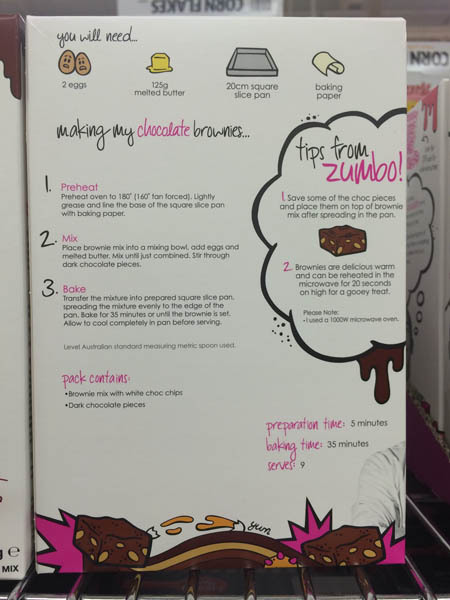 CORN FLAKES
CORN
you will need...
2 eggs
125g
melted butter
20cm square
slice pan
baking
paper
making my chocolate brownies...
1. Preheat
Preheat oven to 180° (160° fan forced). Lightly
grease and line the base of the square slice pan
with baking paper.
2. Mix
Place brownie mix into a mixing bowl, add eggs and
melted butter. Mix until just combined. Stir through
dark chocolate pieces.
3. Bake
Transfer the mixture into prepared square slice pan,
spreading the mixture evenly to the edge of the
pan. Bake for 35 minutes or until the brownie is set.
Allow to cool completely in pan before serving.
Level Australian standard measuring metric spoon used.
pack contains:
•Brownie mix with white choc chips
•Dark chocolate pieces
tips from
zumbo!
1. Save some of the choc pieces
and place them on top of brownie
mix after spreading in the pan.
2. Brownies are delicious warm
and can be reheated in the
microwave for 20 seconds
on high for a gooey treat.
Please Note:
• I used a 1000W microwave oven.
preparation time: 5 minutes
baking time: 35 minutes
serves: 9
g e
MIX